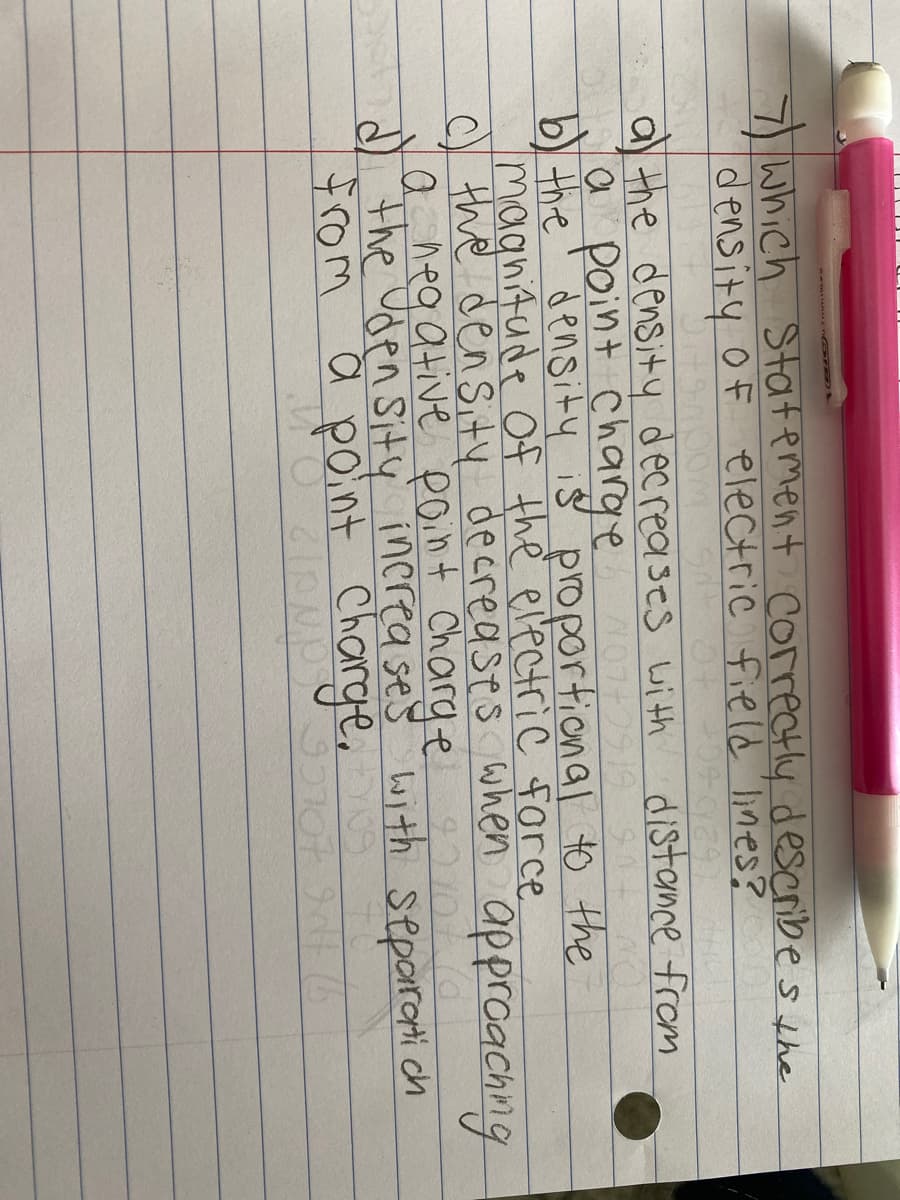 7) Which statement correctly describes the
density of electric field lines?
a) the density decreases with distance from
a point charge
b) the density is proportional to the
magnitude of the electric force
c) the density decreases when approaching
a negative point charge
d) the density increases with separation
from a point charge.